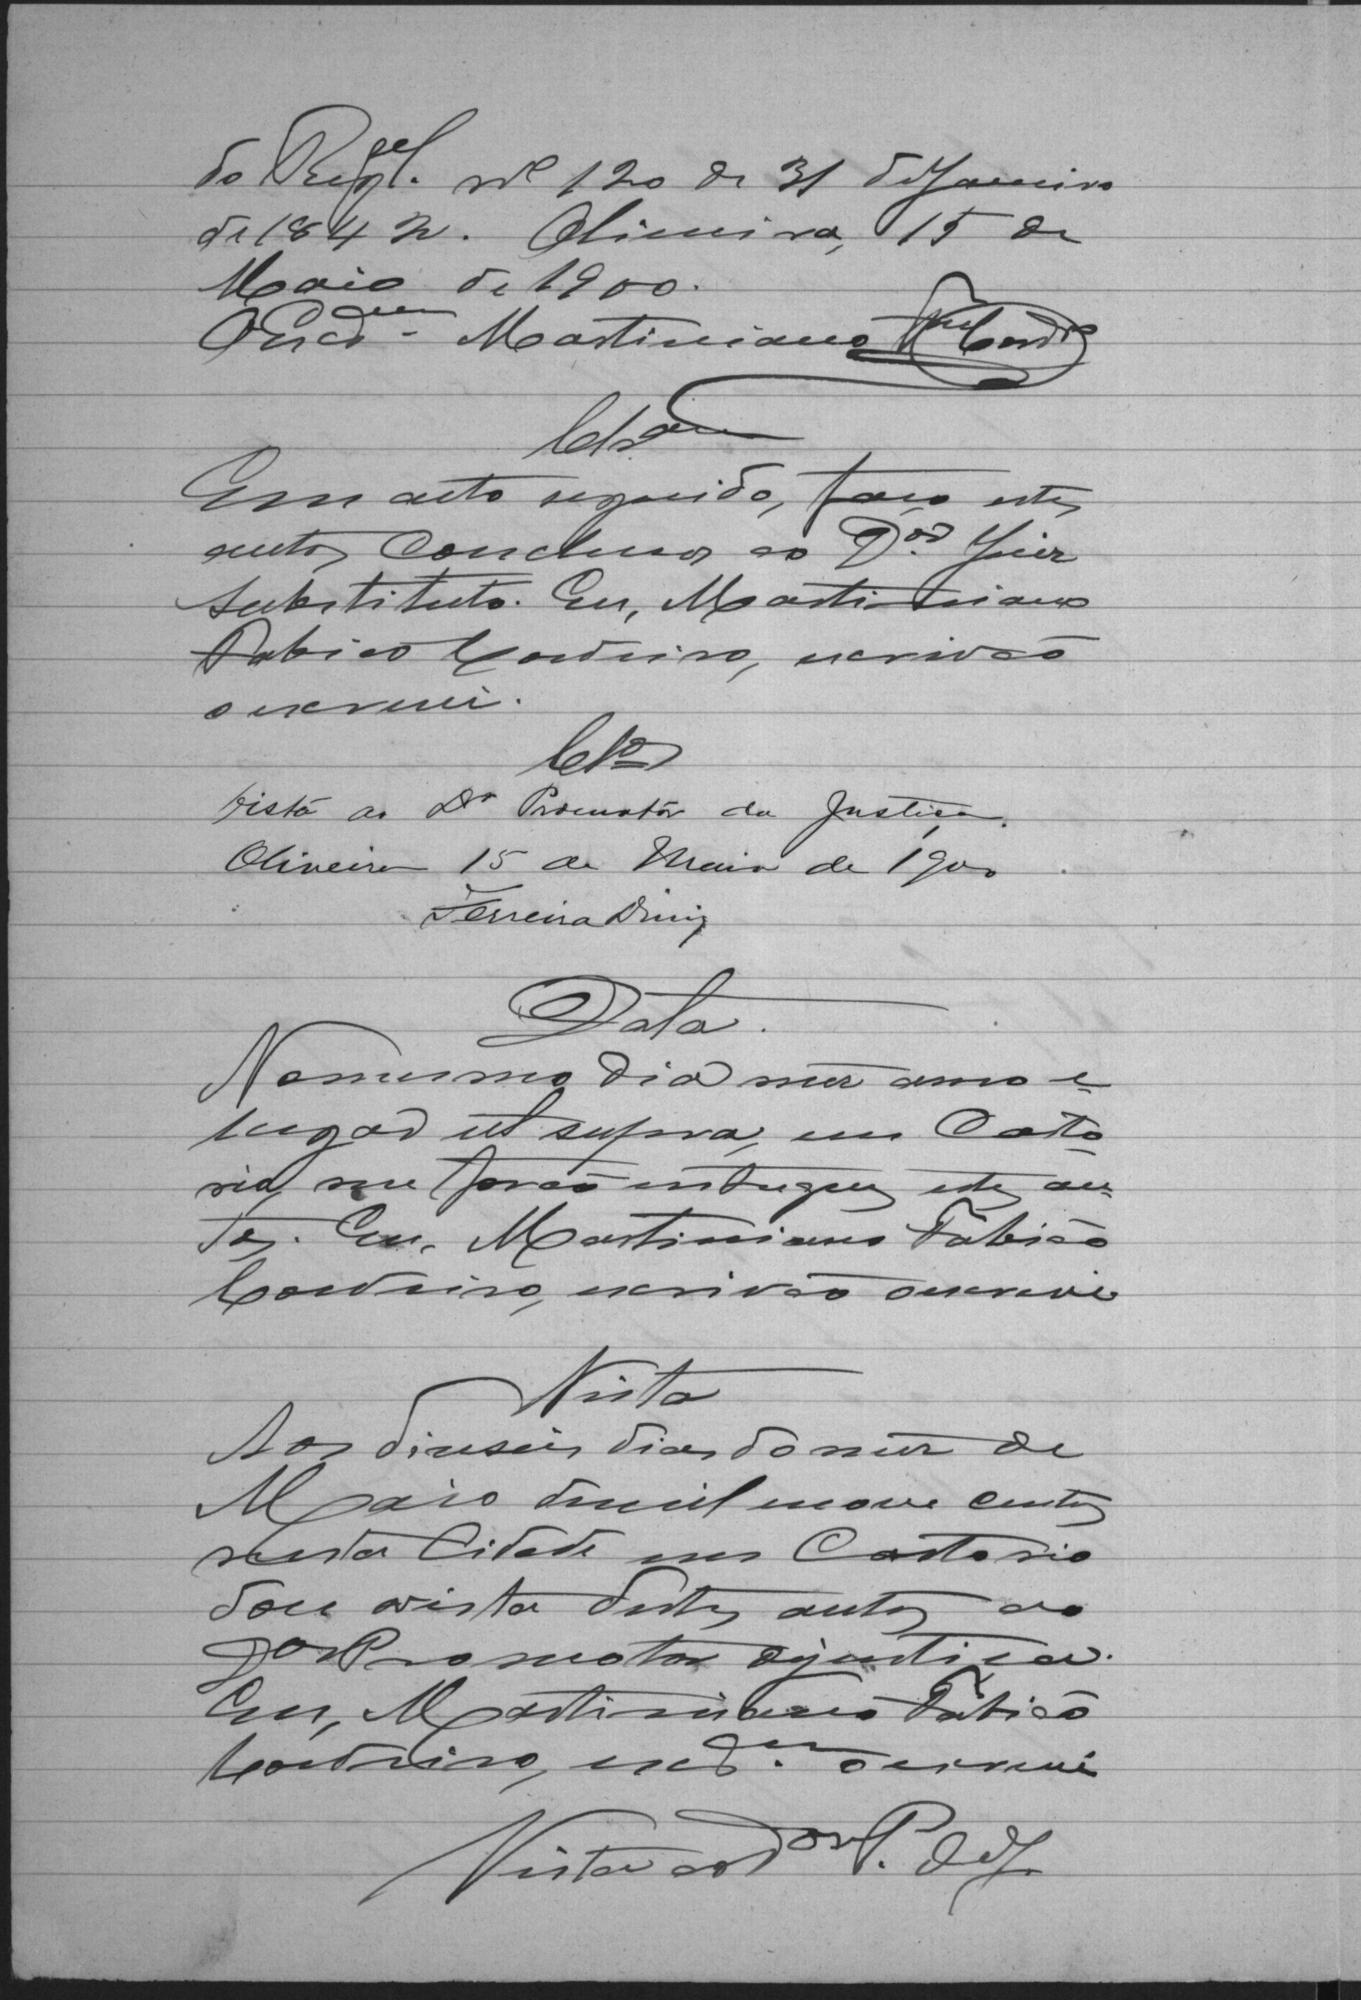 do Regul. nº 120 de 31 de Janeiro
de 1842. Oliveira, 15 de
Maio de 1900.
O Escram Martiniano Fam Cordro
Clsam
Em acto seguido, faço estes
autos conclusos ao Dor Juiz
Substituto. Eu, Martiniano
Fabião Cordeiro, escrivão
o escrevi.
Clos
Vista ao Dr Promotor da Justiça.
Oliveira 15 de Maio de 1900
Ferreira Diniz
Data.
No mesmo dia mez anno e
lugar ut supra, em Carto-
rio, me forão entregues estes au-
tos. Eu, Martiniano Fabião
Cordeiro, escrivão o escrevi
Vista
Aos diuseis dias do mez de
Maio de mil nove centos
nesta Cidade em Cartorio
dou vista destes autos ao
Dor Promotor de justiça.
Eu, Martiniano Fabião
Cordeiro, escram o escrevi
Vista ao Dor P. de J.